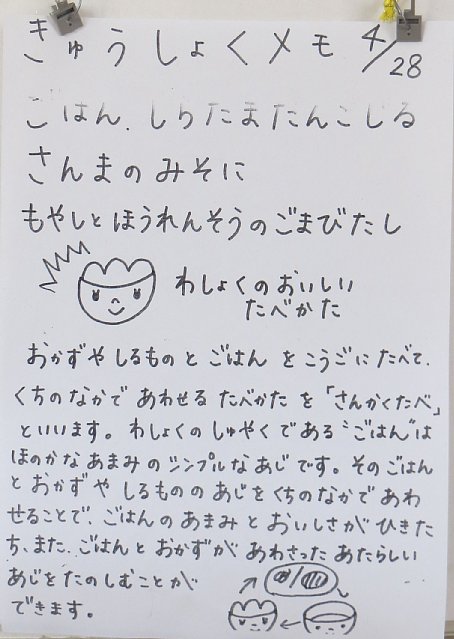 きゅうしょくメモ 4/28
ごはん、しらたまだんごじる
さんまのみそに
もやしとほうれんそうのごまびたし
わしょくのおいしい
たべかた
おかずやしるものとごはんをこうごにたべて、
くちのなかであわせるたべかたを「さんかくたべ」
といいます。わしょくのしゅやくである"ごはん"は
ほのかなあまみのシンプルなあじです。そのごはん
とおかずやしるもののあじをくちのなかであわ
せることで、ごはんのあまみとおいしさがひきた
ち、また、ごはんとおかずがあわさったあたらしい
あじをたのしむことが
できます。